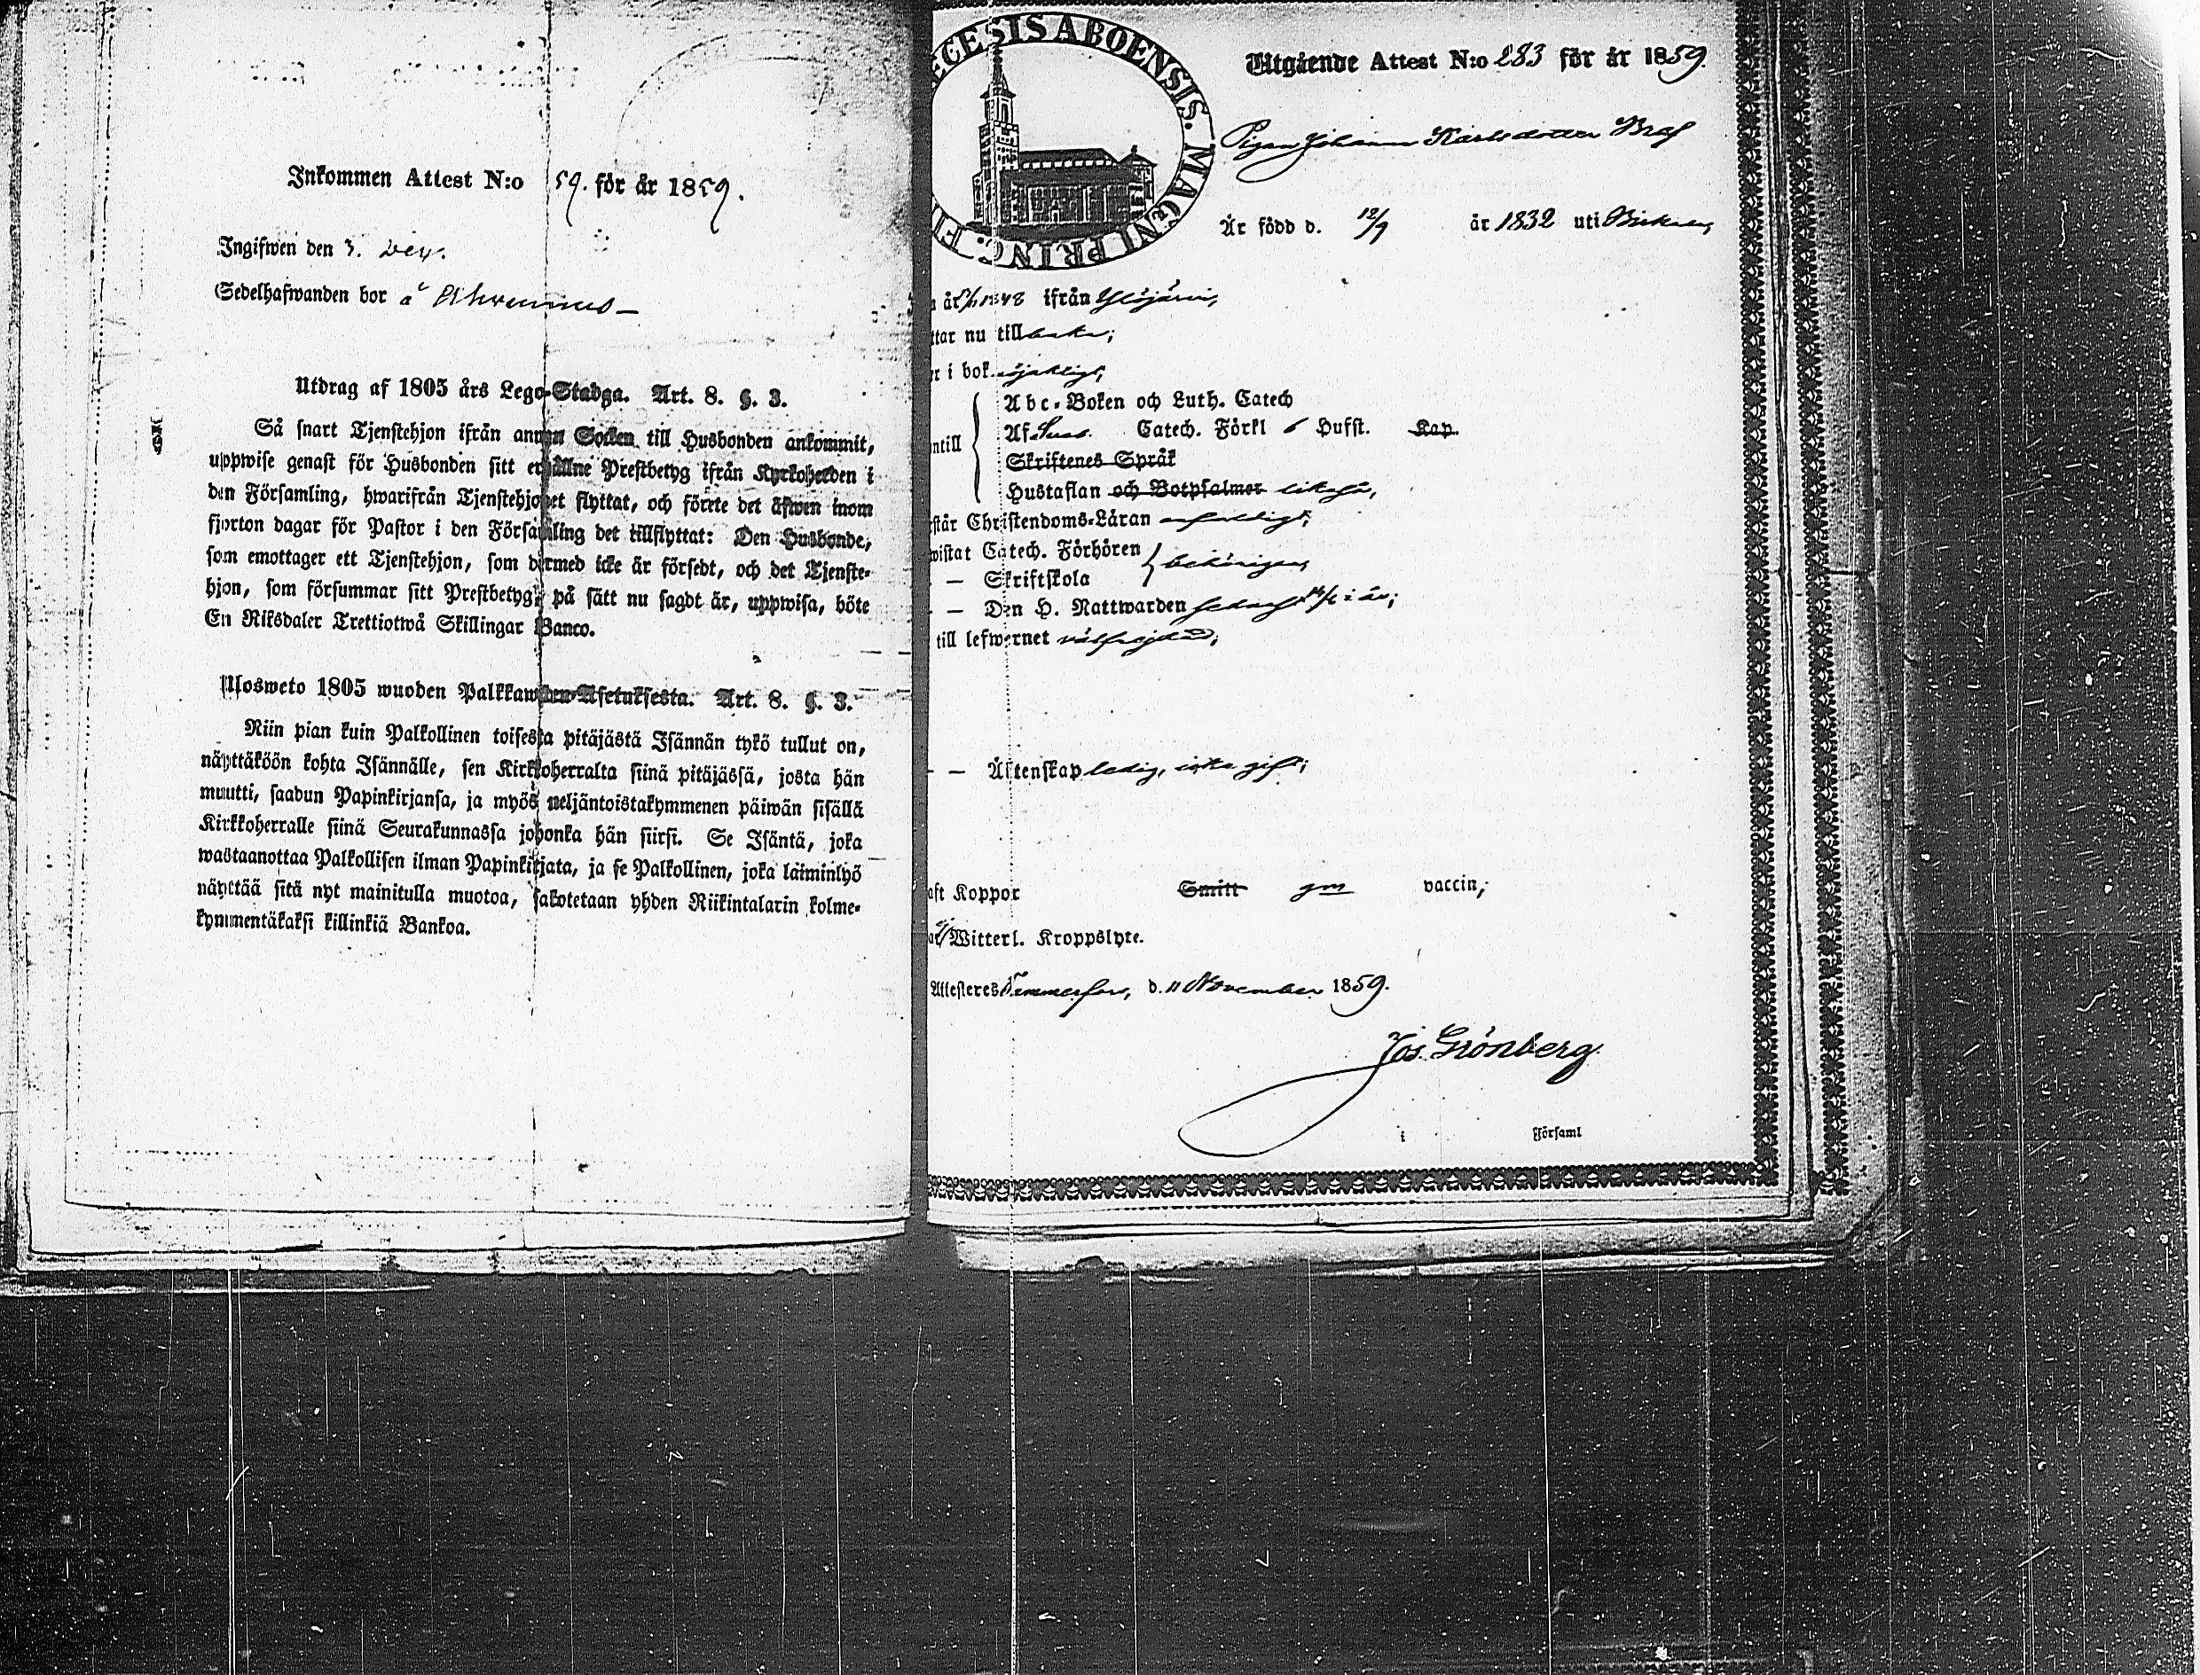 Inkommen Attest N:o 59. för år 1859.
Ingifwen den 3. Dec.
Sedelhafwanden bor å
Utdrag af 1805 års Lego-Stadga. Art. 8. §. 3.
Så snart Tjenstehjon ifrån annan Socken till Husbonden ankommit,
uppwise genast för Husbonden sitt erhållne Prestbetyg ifrån Kyrkoherden i
den Församling, hwarifrån Tjenstehjonet flyttat, och förete det äfwen inom
fjorton dagar för Pastor i den Församling det tillflyttat: Den Husbonde,
som emottager ett Tjenstehjon, som dermed icke är försedt, och det Tjenste-
hjon, som försummar sitt Prestbetyg, på sätt nu sagdt är, uppwisa, böte
En Riksdaler Trettiotwå Skillingar Banco.
Ulosweto 1805 wuoden Palkkawäen-Asetuksesta. Art. 8. §. 3.
Niin pian kuin Palkollinen toisesta pitäjästä Isännän tykö tullut on,
näyttäköön kohta Isännälle, sen Kirkkoherralta siinä pitäjässä, josta hän
muutti, saadun Papinkirjansa, ja myös neljäntoistakymmenen päiwän sisällä
Kirkkoherralle siinä Seurakunnassa johonka hän siirsi. Se Isäntä, joka
wastaanottaa Palkollisen ilman Papinkirjata, ja se Palkollinen, joka laiminlyö
näyttää sitä nyt mainitulla muotoa, sakotetaan yhden Riikintalarin kolme-
kymmentäkaksi killinkiä Bankoa.
ECESIS ABOENSIS. MAGNI PRINC. FI
Utgående Attest N:o 283 för år 1859.
Pigan Johanna Karlsdotter Braf
Är född d. 12/9 år 1832 uti Birkala,
år 1848 ifrån Ylöjärvi,
ttar nu tillbaka;
r i bok nöjaktigt,
Abc-Boken och Luth. Catech
ntill Af Sveb. Catech. Förkl Husst. Kap.
Skriftenes Språk
Hustaflan och Botpsalmer likaså,
står Christendoms-Läran enfaldigt;
wistat Catech. Förhören behörigen,
— Skriftskola
— — Den H. Nattwarden i år;
till lefwernet välfrejdad;
— — Äktenskap ledig, icke gift;
aft Koppor Smitt gm vaccin;
Witterl. Kroppslyte.
Attesteres Tammerfors, d. 11 November 1859.
Jos. Grönberg.
i Församl